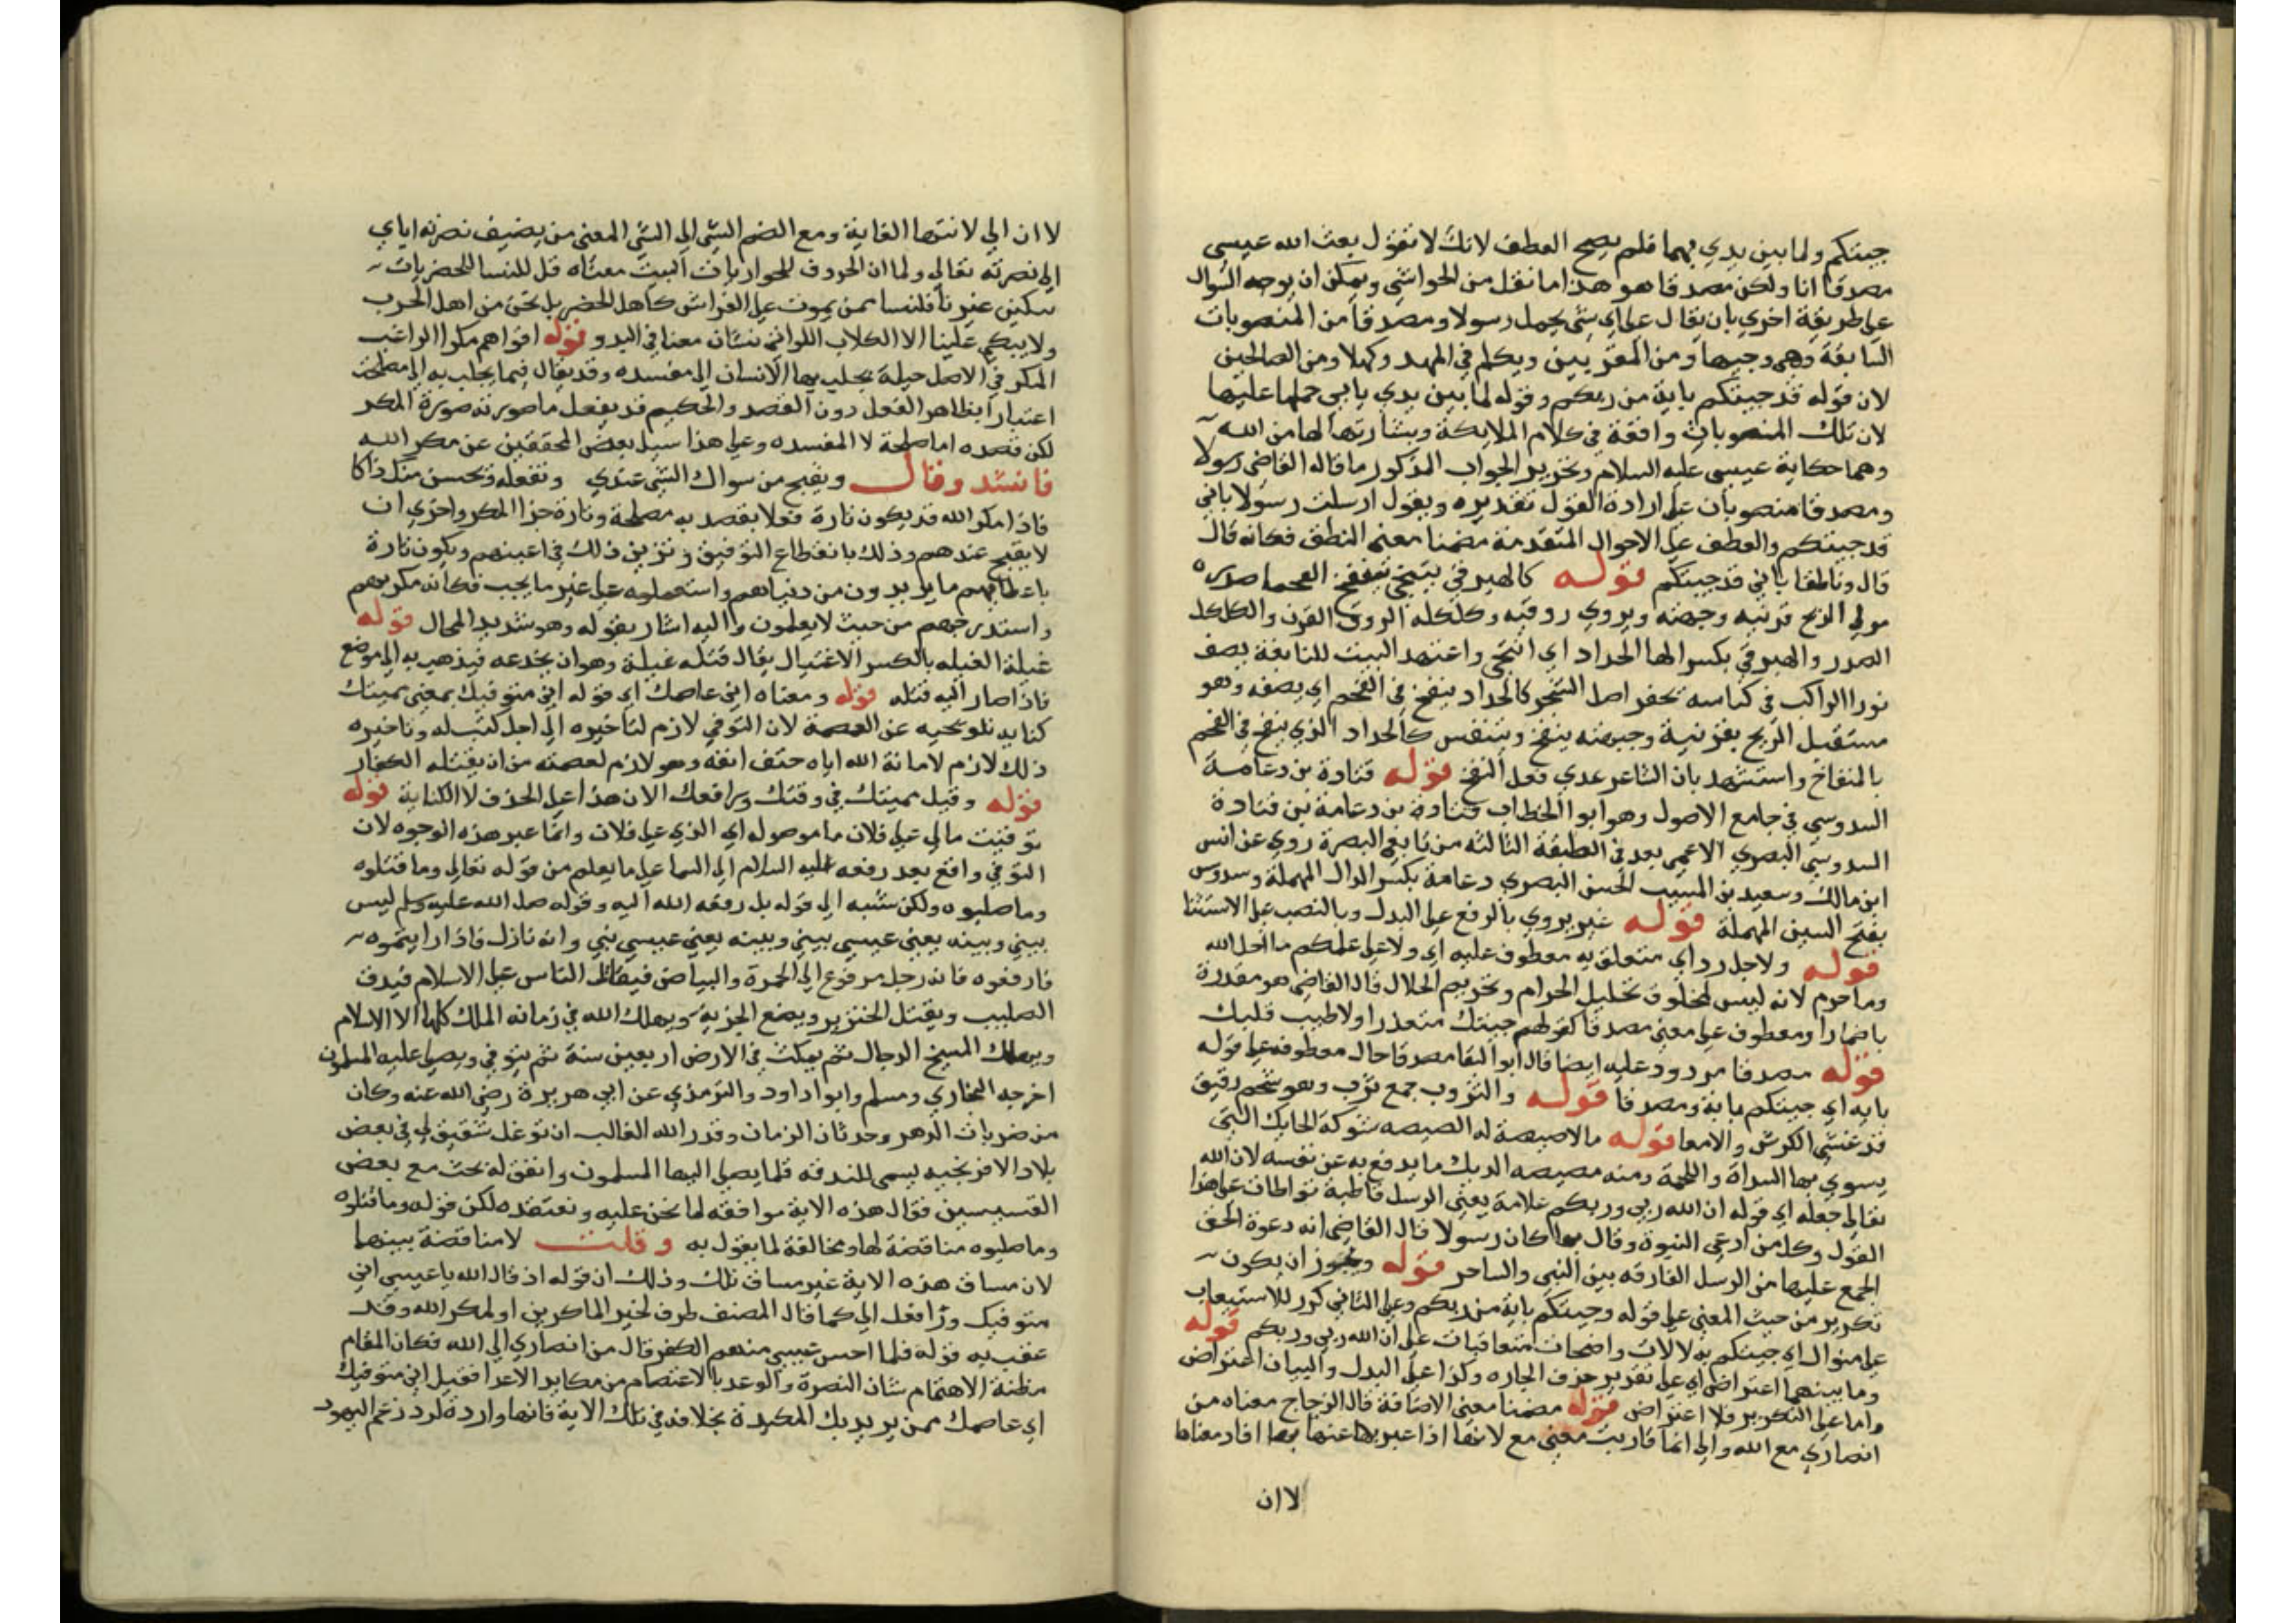 جيتكم ولما بين يدي بهما فلم يصح العطف لانك لا تقول بعث الله عيسى
مصدقا انا ولكن مصدقا هو هذا ما نقل من الحواشي ويمكن ان يوجه السوال
على طريقة اخري بان يقال على اي شي يحمل رسولا ومصدقا من المنصوبات
السابقة وهي وجيها ومن المقربين ويكلم في المهد وكهلا ومن الصالحين
لان قوله قد جيتكم باية من ربكم وقوله لما بين يدي يابي حملها عليها
لان تلك المنصوبات واقعة في كلام الملايكة وبشارتها لها من الله
وهما حكاية عيسى عليه السلام وتحرير الجواب المذكور ما قاله القاضي رسولا
ومصدقا منصوبان على ارادة القول تقديره ويقول ارسلت رسولا باني
قد جيتكم والعطف على الاحوال المتقدمة مضمنا معنى النطق فكانه قال
قال وناطقا باني قد جيتكم قوله كالهبرقي تنحى ينفخ الفحما صدره
مولي الريح قرنيه وجبهته ويروي روقيه وكلكله الروق القرن والكلكل
الصدر والهبرقي بكسر الها الحداد اي انتحى واعتمد البيت للنابغة يصف
ثورا الواكب في كناسه تحفر اصل الشجر كالحداد ينفخ في الفحم اي يصفه وهو
مستقبل الريح بقرنيه وجبهته ينفخ ويتنفس كالحداد الذي ينفخ في الفحم
بالمنفاخ واستشهد بان الشاعر عدي فعل النفخ قوله قتادة بن دعامة
السدوسي في جامع الاصول وهو ابو الخطاب قتادة بن دعامة بن قتادة
السدوسي البصري الاعمى يعد في الطبقة الثالثة من تابعي البصرة روي عن انس
ابن مالك وسعيد بن المسيب الحسن البصري دعامة بكسر الدال المهملة وسدوس
بفتح السين المهملة قوله غير يروي بالرفع على البدل وبالنصب على الاستثنا
قوله ولاحل رد اي متعلق به معطوف عليه اي ولا على علمكم ما احل الله
وما حرم لانه ليس لمخلوق تحليل الحرام وتحريم الحلال قال القاضي هو مقدرة
باضمار او معطوف على معنى مصدقا كقولهم جيتك معتذرا ولاطيب قلبك
قوله مصدقا مردود عليه ايضا قال ابو البقا مصدقا حال معطوفة على قوله
باية اي جيتكم باية ومصدقا قوله والثروب جمع ثرب وهو شحم رقيق
قد غشى الكرش والامعا قوله مالا صيصة له الصيصه شوكة الحايك التي
يسوي بها السداة واللحمة ومنه صيصه الديك ما يدفع به عن نفسه لان الله
تعالى جعله اي قوله ان الله ربي وربكم علامة يعني الرسل قاطبة تواطات على هذا
القول وكل من ادعى النبوة وقال بها كان رسولا قال القاضي انه دعوة الحق
الجمع عليها من الرسل الفارقه بين النبي والساحر قوله ويجوز ان يكون
تكرير من حيث المعنى على قوله وجيتكم باية من ربكم وعلى الثاني كرر للاستيعاب
على منوال اي جيتكم به لالات واضحات متعاقبات على ان الله ربي وربكم قوله
وما بينهما اعتراض اي على تقدير حذف الجاره وكذا على البدل والبيان اعتراض
واما على التكرير فلا اعتراض قوله مضمنا معنى الاضافة قال الزجاج معناه من
انصاري مع الله والى انما قاربت معنى مع لانها اذا عبر بها عنها بها افاد معناها
لا ان
لا ان الي لانتها الغاية ومع الضم الشي الى الشي المعنى من يضيف نصرته اياي
الى نصرته تعالى ولما ان الحروف للحواريات البيت معناه قل للنسا الحضريات
يبكين غيرنا فلنسا ممن يموت على الفراش كاهل الحضر بل نحن من اهل الحرب
ولا يبكى علينا الا الكلاب اللواتي نشان معنا في البدو قوله اقواهم مكرا الراغب
المكر في الاصل حيلة يجلب بها الانسان الى مفسده وقد يقال فيما يجلب به الى مصلحة
اعتبارا بظاهر الفعل دون القصد والحكيم قد يفعل ما صورته صورة المكر
لكن قصده اما صلحة لا المفسده وعلى هذا سيل بعض المحققين عن مكر الله
فانشد وقال ويقبح من سواك الشي عندي وتفعله وتحسن منك ذاكا
فاذا مكر الله قد يكون تارة فعلا يقصد به مصلحة وتارة جزا المكر واخري ان
لا يقبح عندهم وذلك بانقطاع التوفيق وتزيين ذلك في اعينهم ويكون تارة
باعطايهم ما يريدون من دنياهم واستعملوه على غير ما يجب فكانه مكر بهم
واستدرجهم من حيث لا يعلمون واليه اشار بقوله وهو شديد المحال قوله
غيلة الغيله بالكسر الاغتيال يقال قتله غيلة وهو ان يخدعه فيذهب به الى موضع
فاذا صار اليه قتله قوله ومعناه اني عاصمك اي قوله اني متوفيك بمعنى مميتك
كناية تلويحيه عن العصمة لان التوفي لازم لتاخيره الى اجل كتب له وتاخيره
ذلك لازم لاماتة الله اياه حتف انفه وهو لازم لعصمته من ان يقتله الكفار
قوله وقيل مميتك في وقتك ورافعك الان هذا على الحذف لا الكناية قوله
توفيت مالي على فلان ما موصوله اي الذي على فلان وانما عبر هذه الوجوه لان
التوفي واقع بعد رفعه عليه السلام الى السما على ما يعلم من قوله تعالى وما قتلوه
وما صلبوه ولكن شبه الى قوله بل رفعه الله اليه وقوله صلى الله عليه وسلم ليس
بيني وبينه يعني عيسى بيني وبينه يعني عيسى نبي وانه نازل فاذا رايتموه
فارفعوه فانه رجل مرفوع الى الحمرة والبياض فيقاتل الناس على الاسلام فيدق
الصليب ويقتل الخنزير ويضع الجزيه ويهلك الله في زمانه الملل كلها الا الاسلام
ويهلك المسيح الدجال ثم يمكث في الارض اربعين سنة ثم يتوفي ويصلي عليه المسلمون
اخرجه البخاري ومسلم وابو داود والترمذي عن ابي هريرة رضي الله عنه وكان
من ضربات الدهر وحدثان الزمان وقدر الله الغالب ان توغل شقيق لي في بعض
بلاد الافرنجيه يسمى للندقه فلما يصلي اليها المسلمون واتفق له بحث مع بعض
القسيسين فقال هذه الاية موافقه لما نحن عليه ونعتقده لكن قوله وما قتلوه
وما صلبوه مناقضة لها ومخالفة لما يقول به وقلت لا مناقضة بينهما
لان مساق هذه الاية غير مساق تلك وذلك ان قوله اذ قال الله يا عيسى اني
متوفيك ورافعك الي كما قال المصنف ظرف لخير الماكرين او لمكر الله وقد
عقب به قوله فلما احس عيسى منهم الكفر قال من انصاري الى الله فكان المقام
مظنة الاهتمام شان النصرة والوعد بالاعتصام من مكايد الاعدا فقيل اني متوفيك
اي عاصمك ممن يريد بك المكيدة بخلافه في تلك الاية فانها واردة لرد زعم اليهود